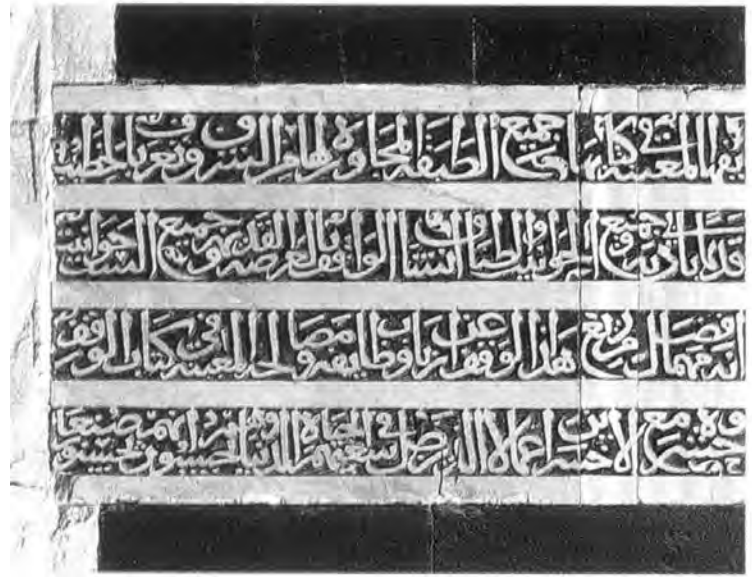 المعينة جميع الطبقة المجاورة لها من الشرق وتعرف
وجميع الحوانيت والطباق انشا الواقف بالعرصة القديمة وجميع الست حوانيت
انه مهما فضل من ريع هذا الوقف عن ارباب وظايفه ومصالحه المعينة في كتاب الوقف
وة حشر مع الاخسرين اعمالا الذين ضل سعيهم في الحياة الدنيا وهم يحسبون انهم يحسنون صنعا